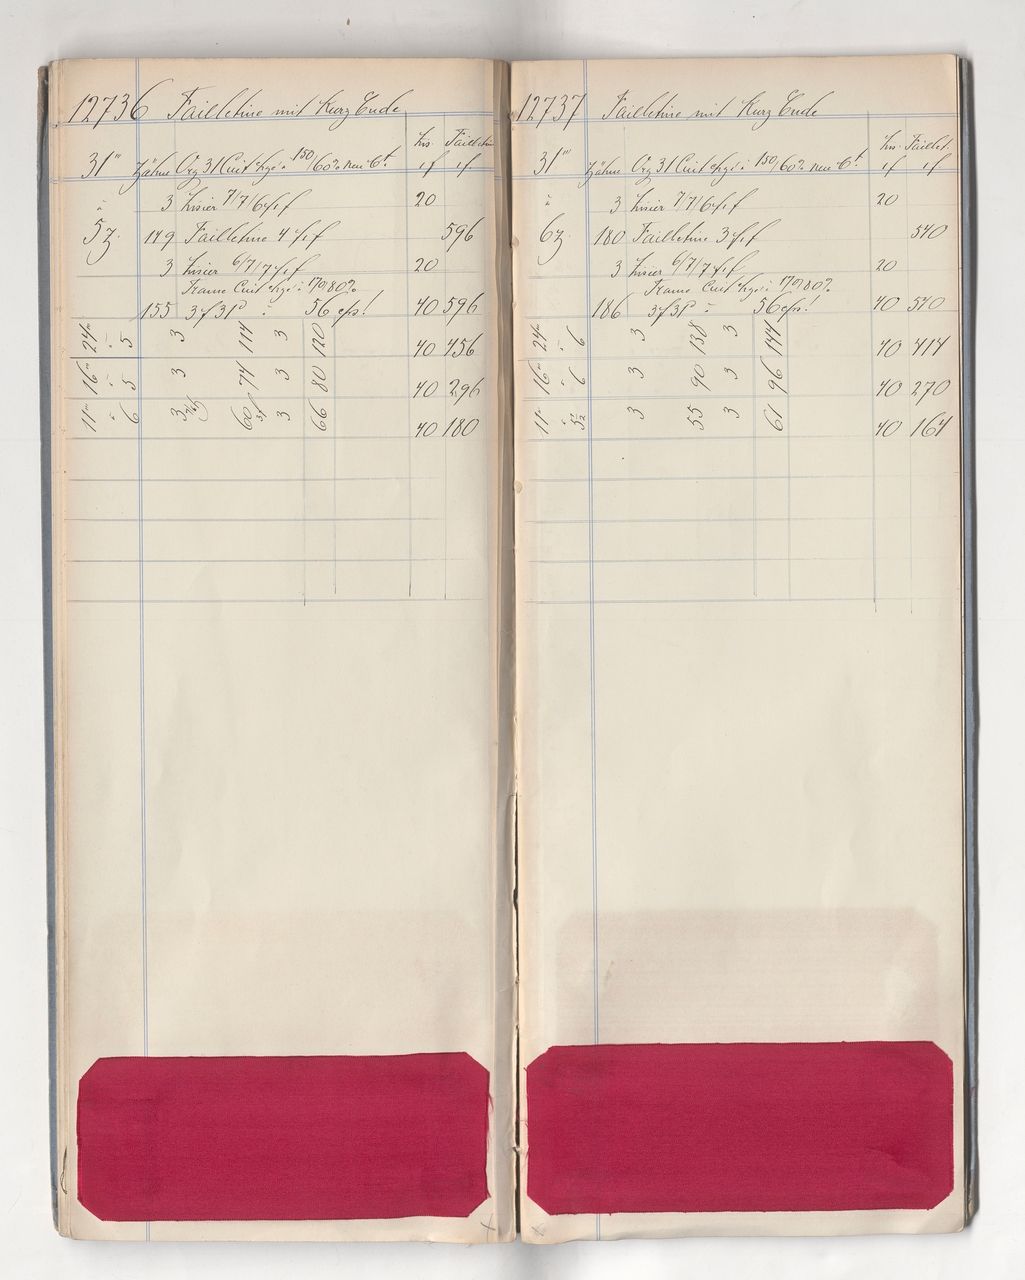 12736 Failletine mit Kurz Ende
Lis. Failletine
31''' Zähne Org 31 Cuit chgé à 150/60% neu 6t. 1f 1f.
" 3 Lisier 7/7/6 f 1 f 20
5z. 149 Failletine 4 f 1 f 596
3 Lisier 6/7/7 f 1 f 20
Trame Cuit chgé à 170/80%
155 3f 31d à 56 cps! 40 596
24''' " 5 3 114 3 120 40 456
16''' " 5 3 74 3 80 40 296
11''' " 6 3 60 3 66 40 180
12737 Failletine mit Kurz Ende
Lis. Faillet.
31''' Zähne Org 31 Cuit chgé à 150/60% neu 6t. 1f 1f.
" 3 Lisier 7/7/6 f 1 f 20
6z. 180 Failletine 3 f 1 f 540
3 Lisier 6/7/7 f 1 f 20
Trame Cuit chgé à 170/80%
186 3f 31d à 56 cps! 40 540
24''' " 6 3 138 3 144 40 414
16''' " 6 3 90 3 96 40 270
11''' " 5½ 3 55 3 61 40 164